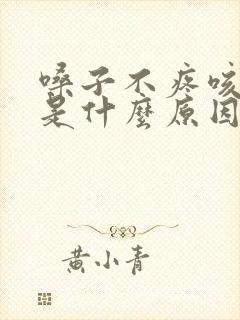 嗓子不疼咳
是什麼原因
黄小青